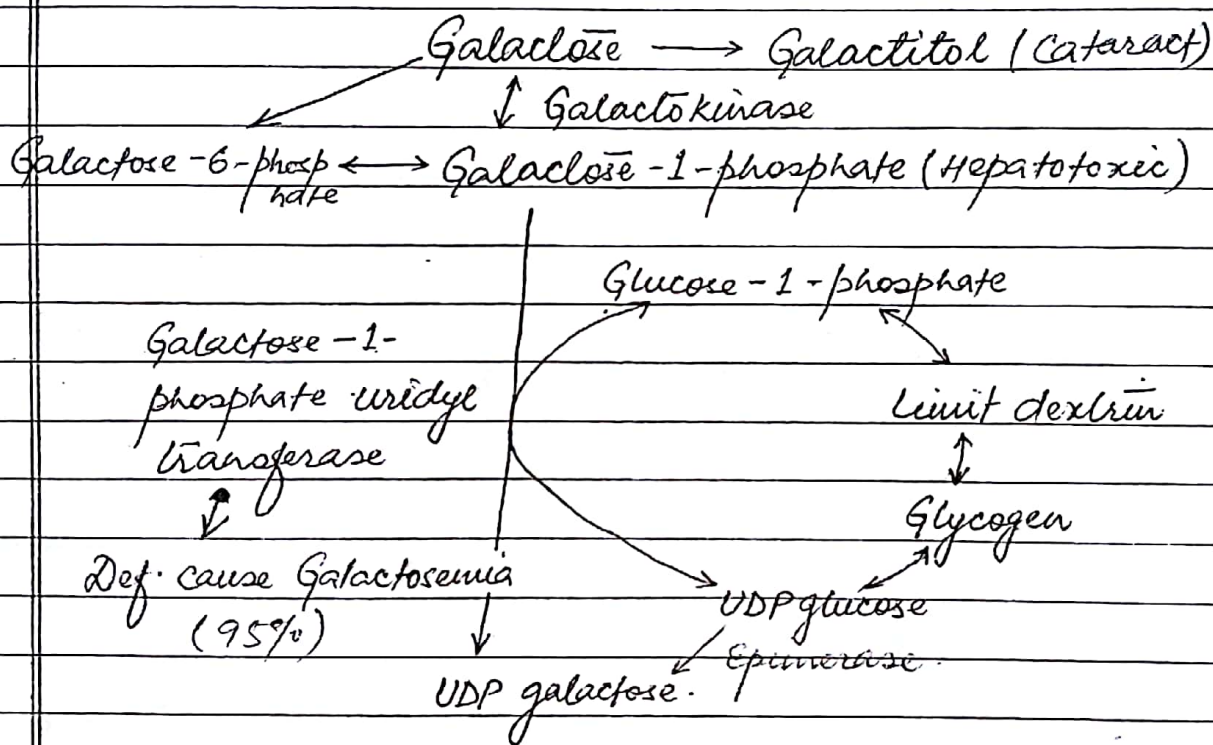 Galactose → Galactitol (Cataract)
↕ Galactokinase
Galactose-6-phosp
hate ↔ Galactose-1-phosphate (Hepatotoxic)
Glucose-1-phosphate
Galactose-1-
phosphate uridyl
transferase
Limit dextrin
Glycogen
Def. cause Galactosemia
(95%)
UDP glucose
Epimerase.
UDP galactose.